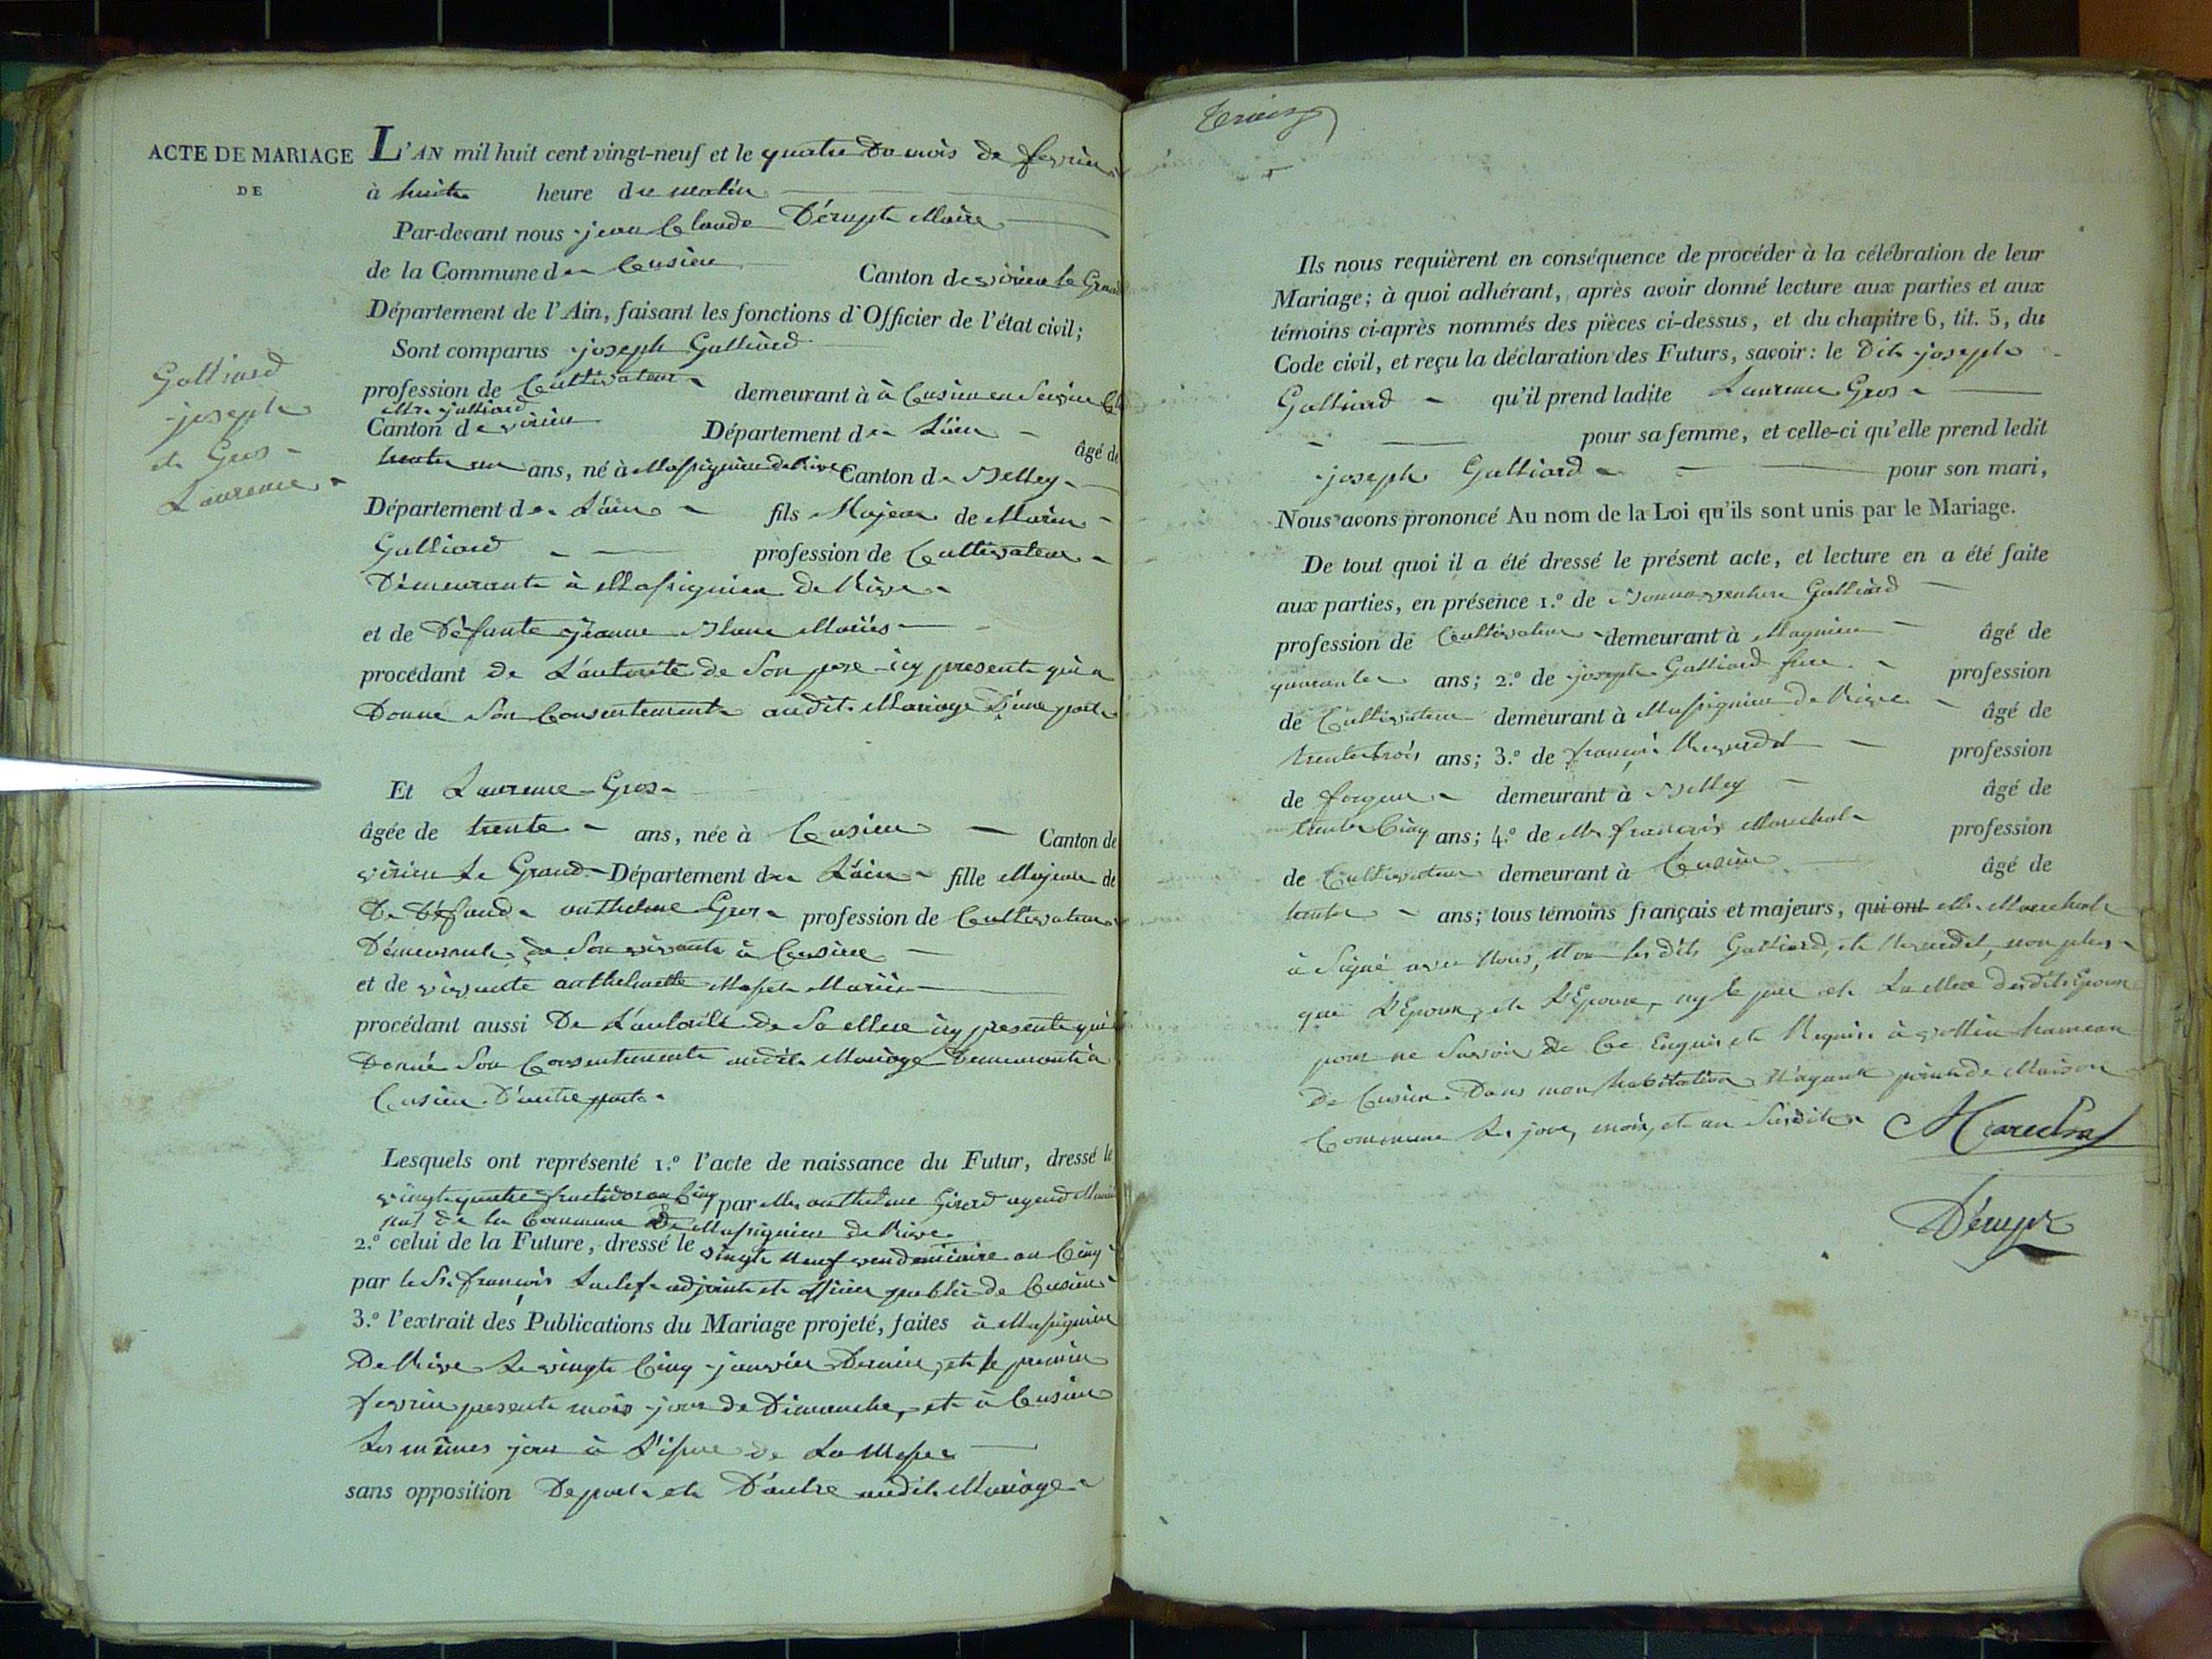 ACTE DE MARIAGE
DE
Galliard
joseph
et Gros
Laurence
L'AN mil huit cent vingt-neuf et le quatre du mois de fevrier
à huit heure du matin
Par-devant nous jean Claude Dérupt Maire
de la Commune de Cusieu Canton de virieu le Grand
Département de l'Ain, faisant les fonctions d'Officier de l'état civil;
Sont comparus joseph Galliard
profession de Cultivateur demeurant à à Cusieu en Service
Mr galliard
Canton de virieu Département de L'ain âgé de
trente un ans, né à Massignieu de Rive Canton de Belley
Département de L'ain fils Majeur de Marin
Galliard profession de Cultivateur
Demeurant à Massignieu de Rive
et de Défunte jeanne Mariés
procédant de L'autorité de Son pere icy present qui a
Donné Son Consentement audit Mariage D'une part
Et Laurence Gros
âgée de trente ans, née à Cusieu Canton de
virieu Le Grand Département de L'ain fille Majeure de
De Défund anthelme Gros profession de Cultivateur
Demeurant de Son vivant à Cusieu
et de vivante anthelmette Masset Mariés
procédant aussi De L'autorité de Sa Mere icy presente qui
Donné Son Consentement audit Mariage Demeurant à
Cusieu D'autre part
Lesquels ont représenté 1.° l'acte de naissance du Futur, dressé le
vingt quatre fructidor an Cinq par Mr anthelme Girard agend Munici
pal de la Commune De Massignieu de Rive
2.° celui de la Future, dressé le vingt neuf vendemiaire an Cinq
par le Sr françois adjoint et officier public de Cusieu
3.° l'extrait des Publications du Mariage projeté, faites à Massignieu
De Rive Le vingt Cinq janvier Dernier, et le premier
fevrier present mois jour de Dimanche, et à Cusieu
Les mêmes jour à L'issue de La Messe
sans opposition De part et D'autre audit Mariage
Ils nous requièrent en conséquence de procéder à la célébration de leur
Mariage; à quoi adhérant, après avoir donné lecture aux parties et aux
témoins ci-après nommés des pièces ci-dessus, et du chapitre 6, tit. 5, du
Code civil, et reçu la déclaration des Futurs, savoir: le Dit joseph
Galliard qu'il prend ladite Laurence Gros
pour sa femme, et celle-ci qu'elle prend ledit
joseph Galliard pour son mari,
Nous avons prononcé Au nom de la Loi qu'ils sont unis par le Mariage.
De tout quoi il a été dressé le présent acte, et lecture en a été faite
aux parties, en présence 1.° de Bonnaventure Galliard
profession de Cultivateur demeurant à Magnieu âgé de
quarante ans; 2.° de joseph Galliard frere profession
de Cultivateur demeurant à Massignieu de Rive âgé de
trente trois ans; 3.° de françois profession
de forgeur demeurant à Belley âgé de
trente Cinq ans; 4.° de Mr françois Marechal profession
de Cultivateur demeurant à Cusieu âgé de
trente ans; tous témoins français et majeurs, qui ont Mr Marechal
à Signé avec Nous, Non les dits Galliard, et non plus
que L'Epoux, et L'Epouse, ny le pere et La Mere desdits Epoux
pour ne Savoir de Ce Enquis et Requis à hameau
De Cusieu Dans mon habitation N'ayant point de Maison
Commune Les jour, mois, et an Susdits Marechal
Dérupt